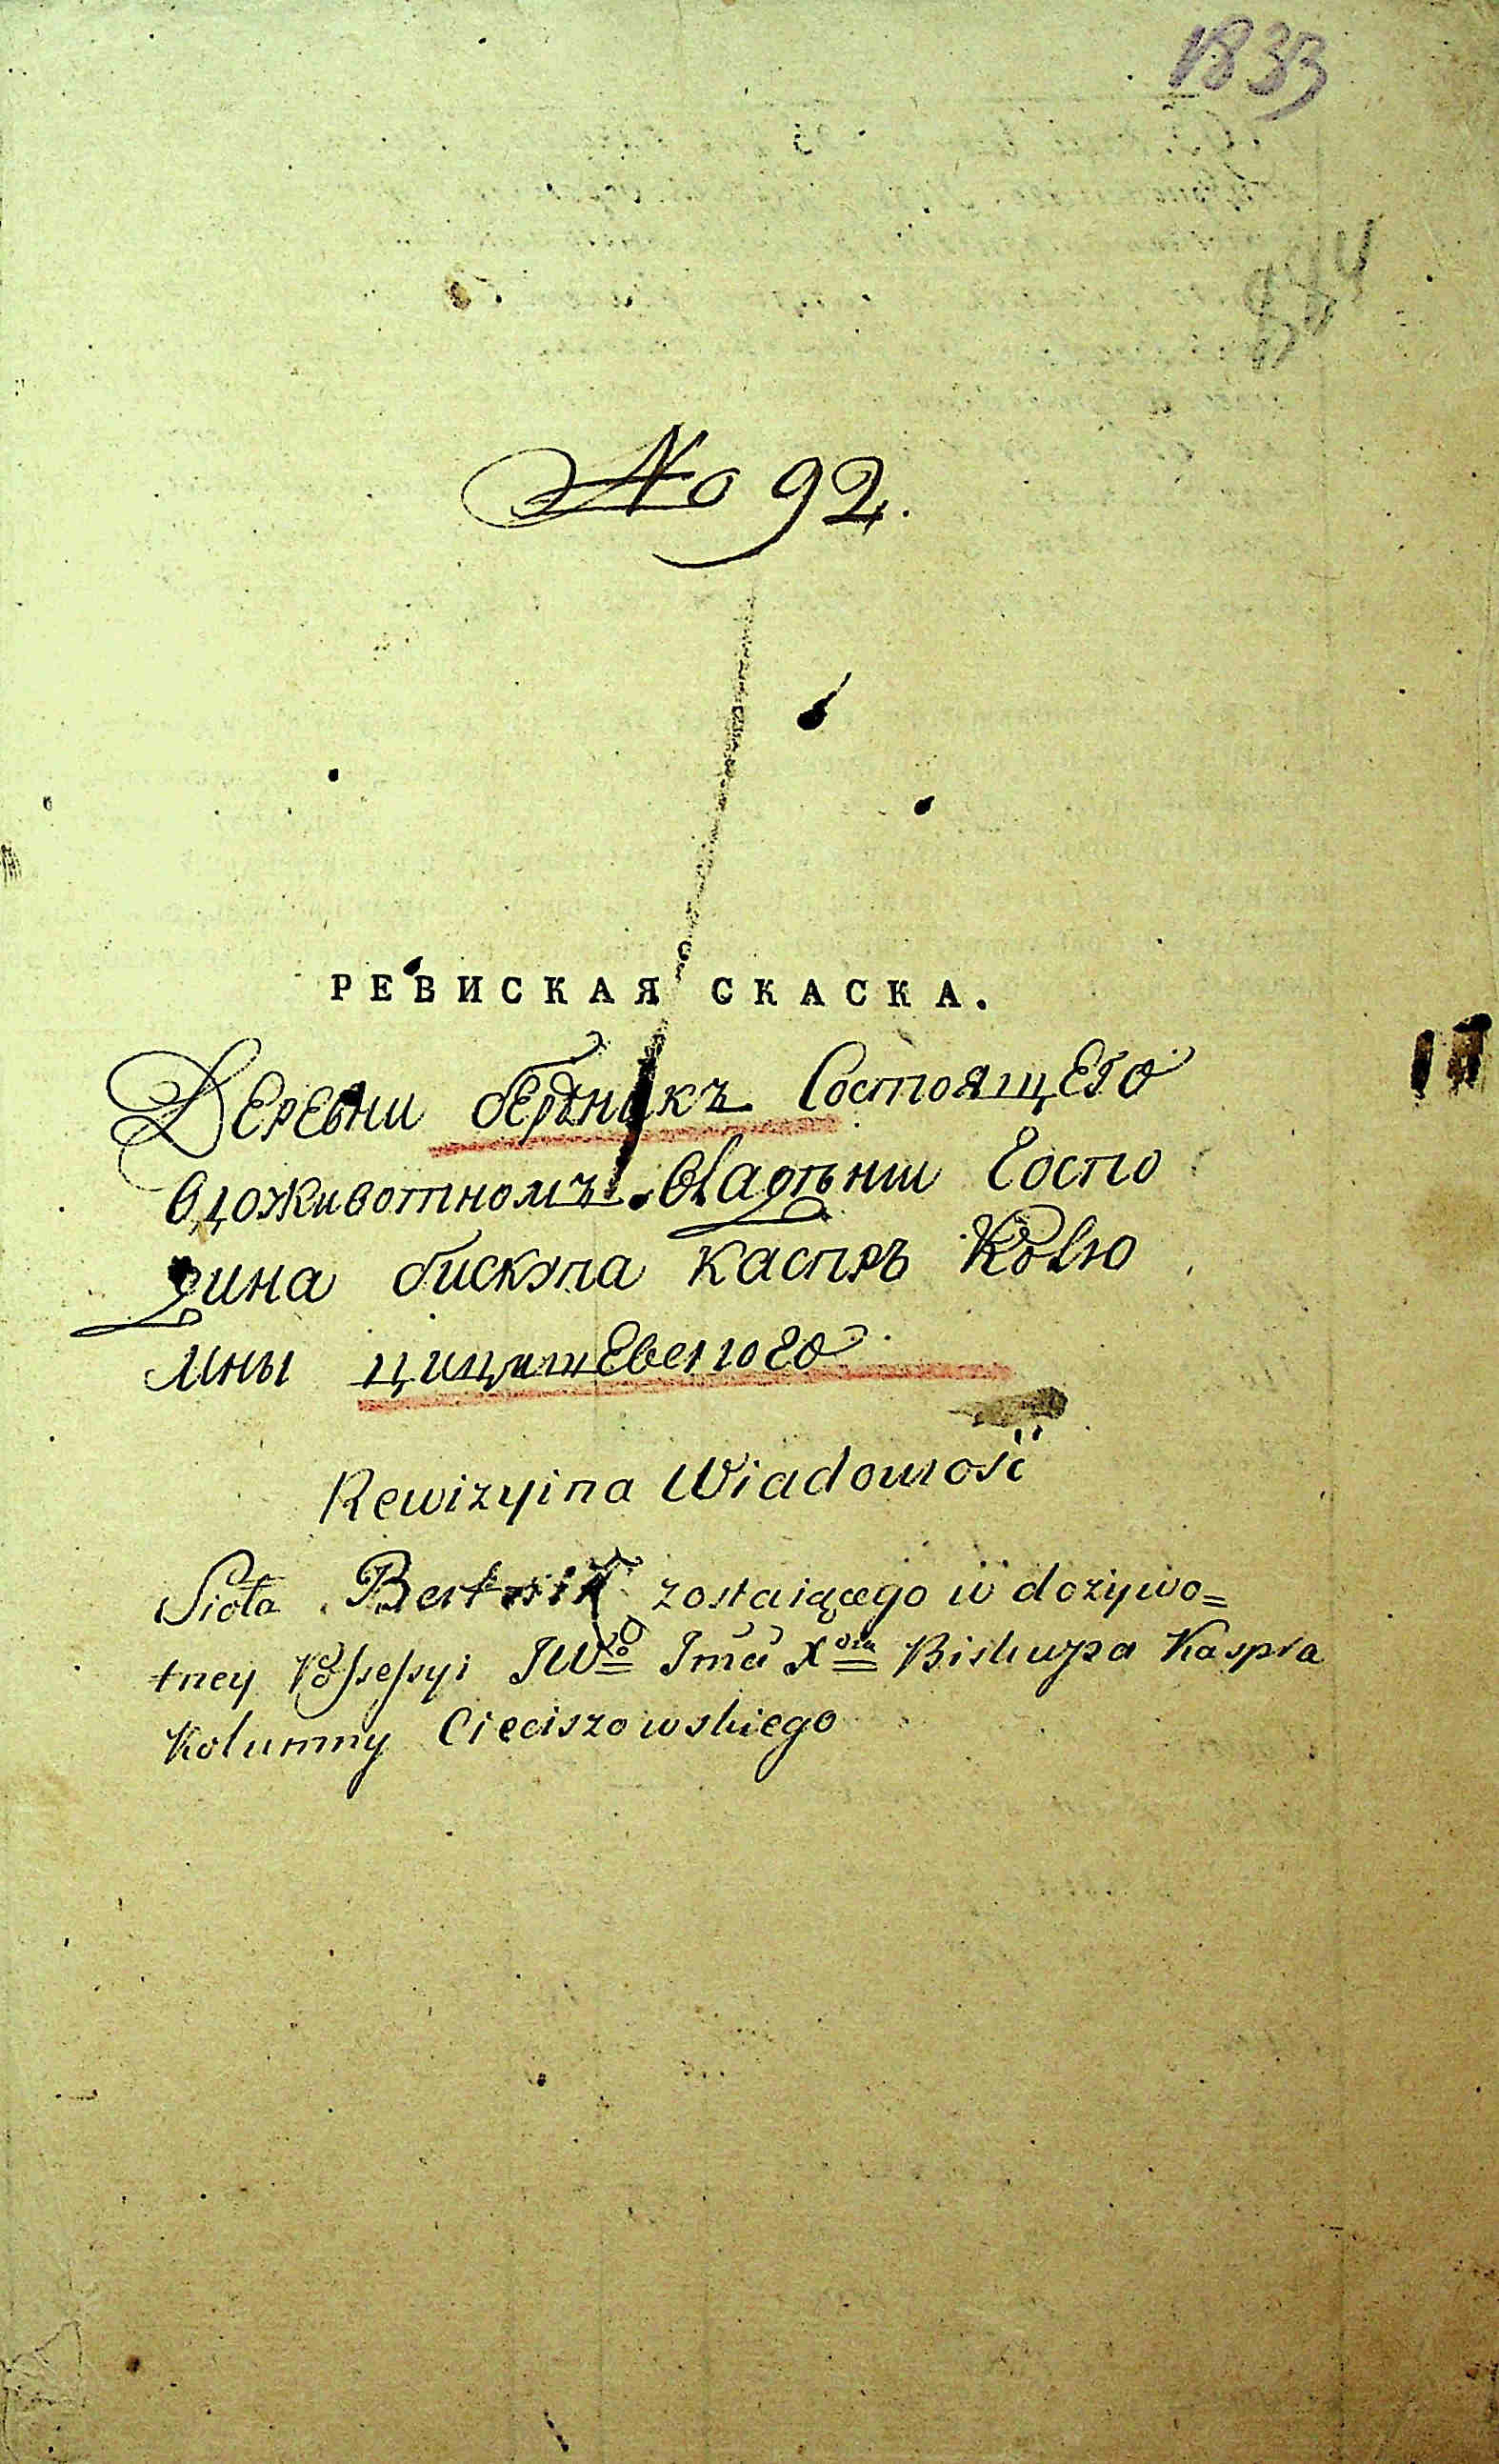 1833
844
No 92.
РЕВИСКАЯ СКАСКА.
Деревни берѣникъ Состоящего
вдоживотномъ владѣнии Госпо
дина бискупа каспръ Колю
мны
Rewizyina Wiadomość
Sioła zostaiącego w dożywo=
tney Possessyi JWo Jmci Xdza Biskupa Kaspra
Kolumny Cieciszowskiego